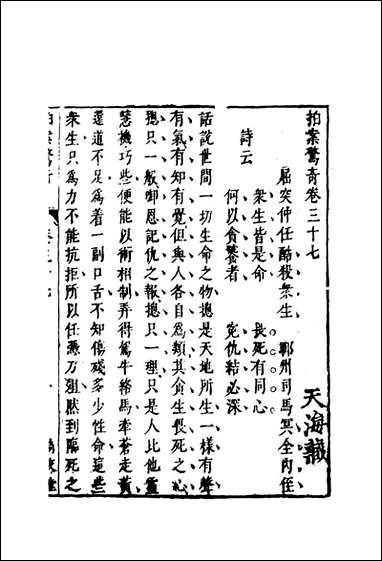 拍案驚奇卷三十七
屈突仲任酷殺衆生　鄆州司馬冥全內侄
詩云
衆生皆是命　畏死有同心
何以貪饕者　寃仇結必深
話說世間一切生命之物摠是天地所生一樣有聲
有氣有知有覺但與人各自爲類其貪生畏死之心
摠只一般啣恩記仇之報摠只一理只是人比他靈
慧機巧些便能以術相制弄得駕牛絡馬牽蒼走黃
還道不足爲着一副口舌不知傷殘多少性命這些
衆生只爲力不能抗拒所以任憑刀俎然到臨死之
拍案驚奇
卷三十七
一
天海藏